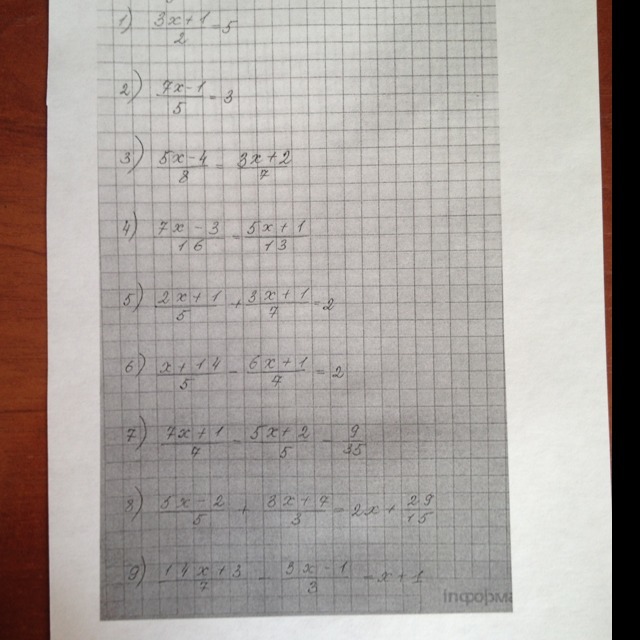 1) (3x+1)/2 = 5
2) (7x-1)/5 = 3
3) (5x-4)/8 = (3x+2)/7
4) (7x-3)/16 = (5x+1)/13
5) (2x+1)/5 + (3x+1)/7 = 2
6) (x+14)/5 - (6x+1)/7 = 2
7) (7x+1)/7 - (5x+2)/5 = 9/35
8) (5x-2)/5 + (3x+7)/3 = 2x + 29/15
9) (14x+3)/7 - (3x-1)/3 = x+1